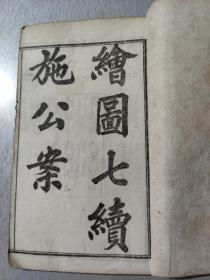 繪圖七續
施公案